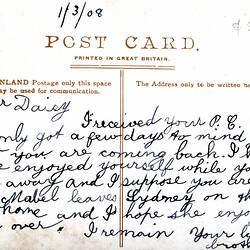 1/3/08
POST CARD.
PRINTED IN GREAT BRITAIN.
NLAND Postage only this space
ay be used for communication.
The Address only to be written he
r Daisy
I received your P.C.
only got a few days to mind
you are coming back. I h
enjoyed yourself while yo
away and I suppose you are
Mabel leaves Sydney on th
hone and I hope she enjo
over. I remain Your l